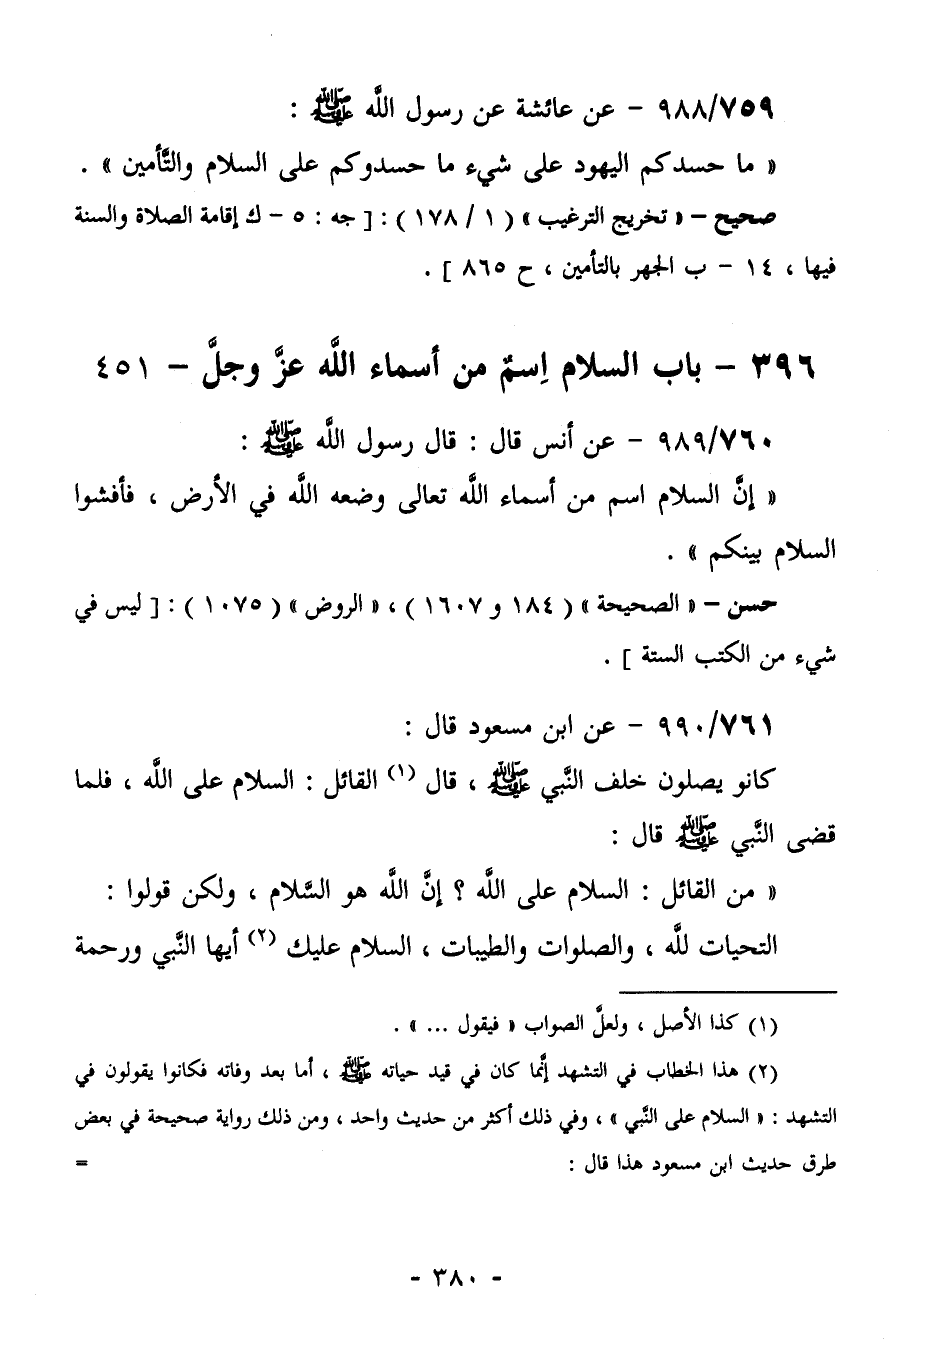 ٩٨٨/٧٥٩ – عن عائشة عن رسول اللَّه ﷺ :
« ما حسدكم اليهود على شيء ما حسدوكم على السلام والتَّأمين » .
صحيح – « تخريج الترغيب » ( ١ / ١٧٨ ) : [ جه : ٥ – ك إقامة الصلاة والسنة
فيها ، ١٤ – ب الجهر بالتأمين ، ح ٨٦٥ ] .
٣٩٦ – باب السلام اِسمٌ من أسماء اللَّه عزَّ وجلَّ – ٤٥١
٩٨٩/٧٦٠ – عن أنس قال : قال رسول اللَّه ﷺ :
« إنَّ السلام اسم من أسماء اللَّه تعالى وضعه اللَّه في الأرض ، فأفشوا
السلام بينكم » .
حسن – « الصحيحة » ( ١٨٤ و ١٦٠٧ ) ، « الروض » ( ١٠٧٥ ) : [ ليس في
شيء من الكتب الستة ] .
٩٩٠/٧٦١ – عن ابن مسعود قال :
كانو يصلون خلف النَّبي ﷺ ، قال (١) القائل : السلام على اللَّه ، فلما
قضى النَّبي ﷺ قال :
« من القائل : السلام على اللَّه ؟ إنَّ اللَّه هو السَّلام ، ولكن قولوا :
التحيات للَّه ، والصلوات والطيبات ، السلام عليك (٢) أيها النَّبي ورحمة
(١) كذا الأصل ، ولعلَّ الصواب « فيقول ... » .
(٢) هذا الخطاب في التشهد إنَّما كان في قيد حياته ﷺ ، أما بعد وفاته فكانوا يقولون في
التشهد : « السلام على النَّبي » ، وفي ذلك أكثر من حديث واحد ، ومن ذلك رواية صحيحة في بعض
طرق حديث ابن مسعود هذا قال : =
- ٣٨٠ -